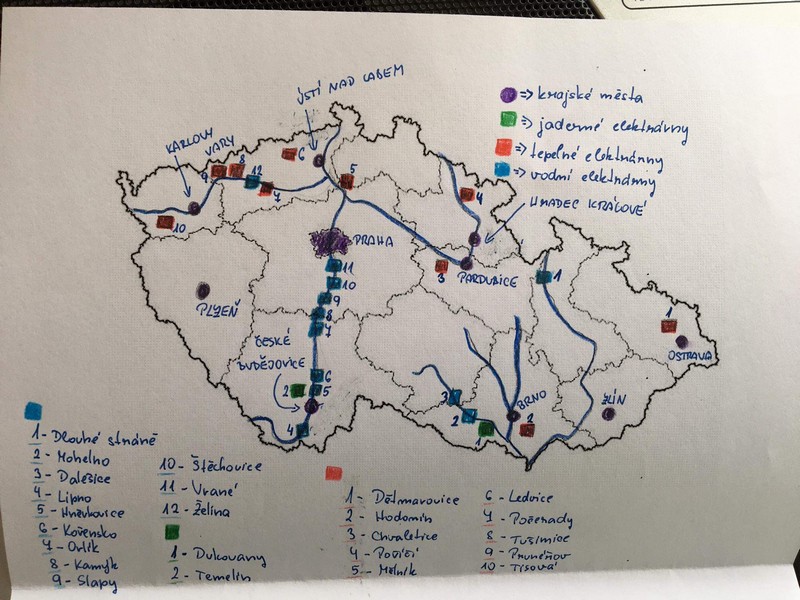 ÚSTÍ NAD LABEM
KARLOVY
VARY
=> krajské města
=> jaderné elektrárny
=> tepelné elektrárny
=> vodní elektrárny
HRADEC KRÁLOVÉ
9
8
12
7
6
5
4
10
PRAHA
11
10
9
8
7
3
PARDUBICE
1
1
PLZEŇ
OSTRAVA
ČESKÉ
BUDĚJOVICE
6
2
5
4
3
2
1
BRNO
2
ZLÍN
1 - Dlouhé stráně
2 - Mohelno
3 - Dalešice
4 - Lipno
5 - Hněvkovice
6 - Kořensko
7 - Orlík
8 - Kamýk
9 - Slapy
10 - Štěchovice
11 - Vrané
12 - Želina
1 - Dukovany
2 - Temelín
1 - Dětmarovice
2 - Hodonín
3 - Chvaletice
4 - Poříčí
5 - Mělník
6 - Ledvice
7 - Počerady
8 - Tušimice
9 - Prunéřov
10 - Tisová